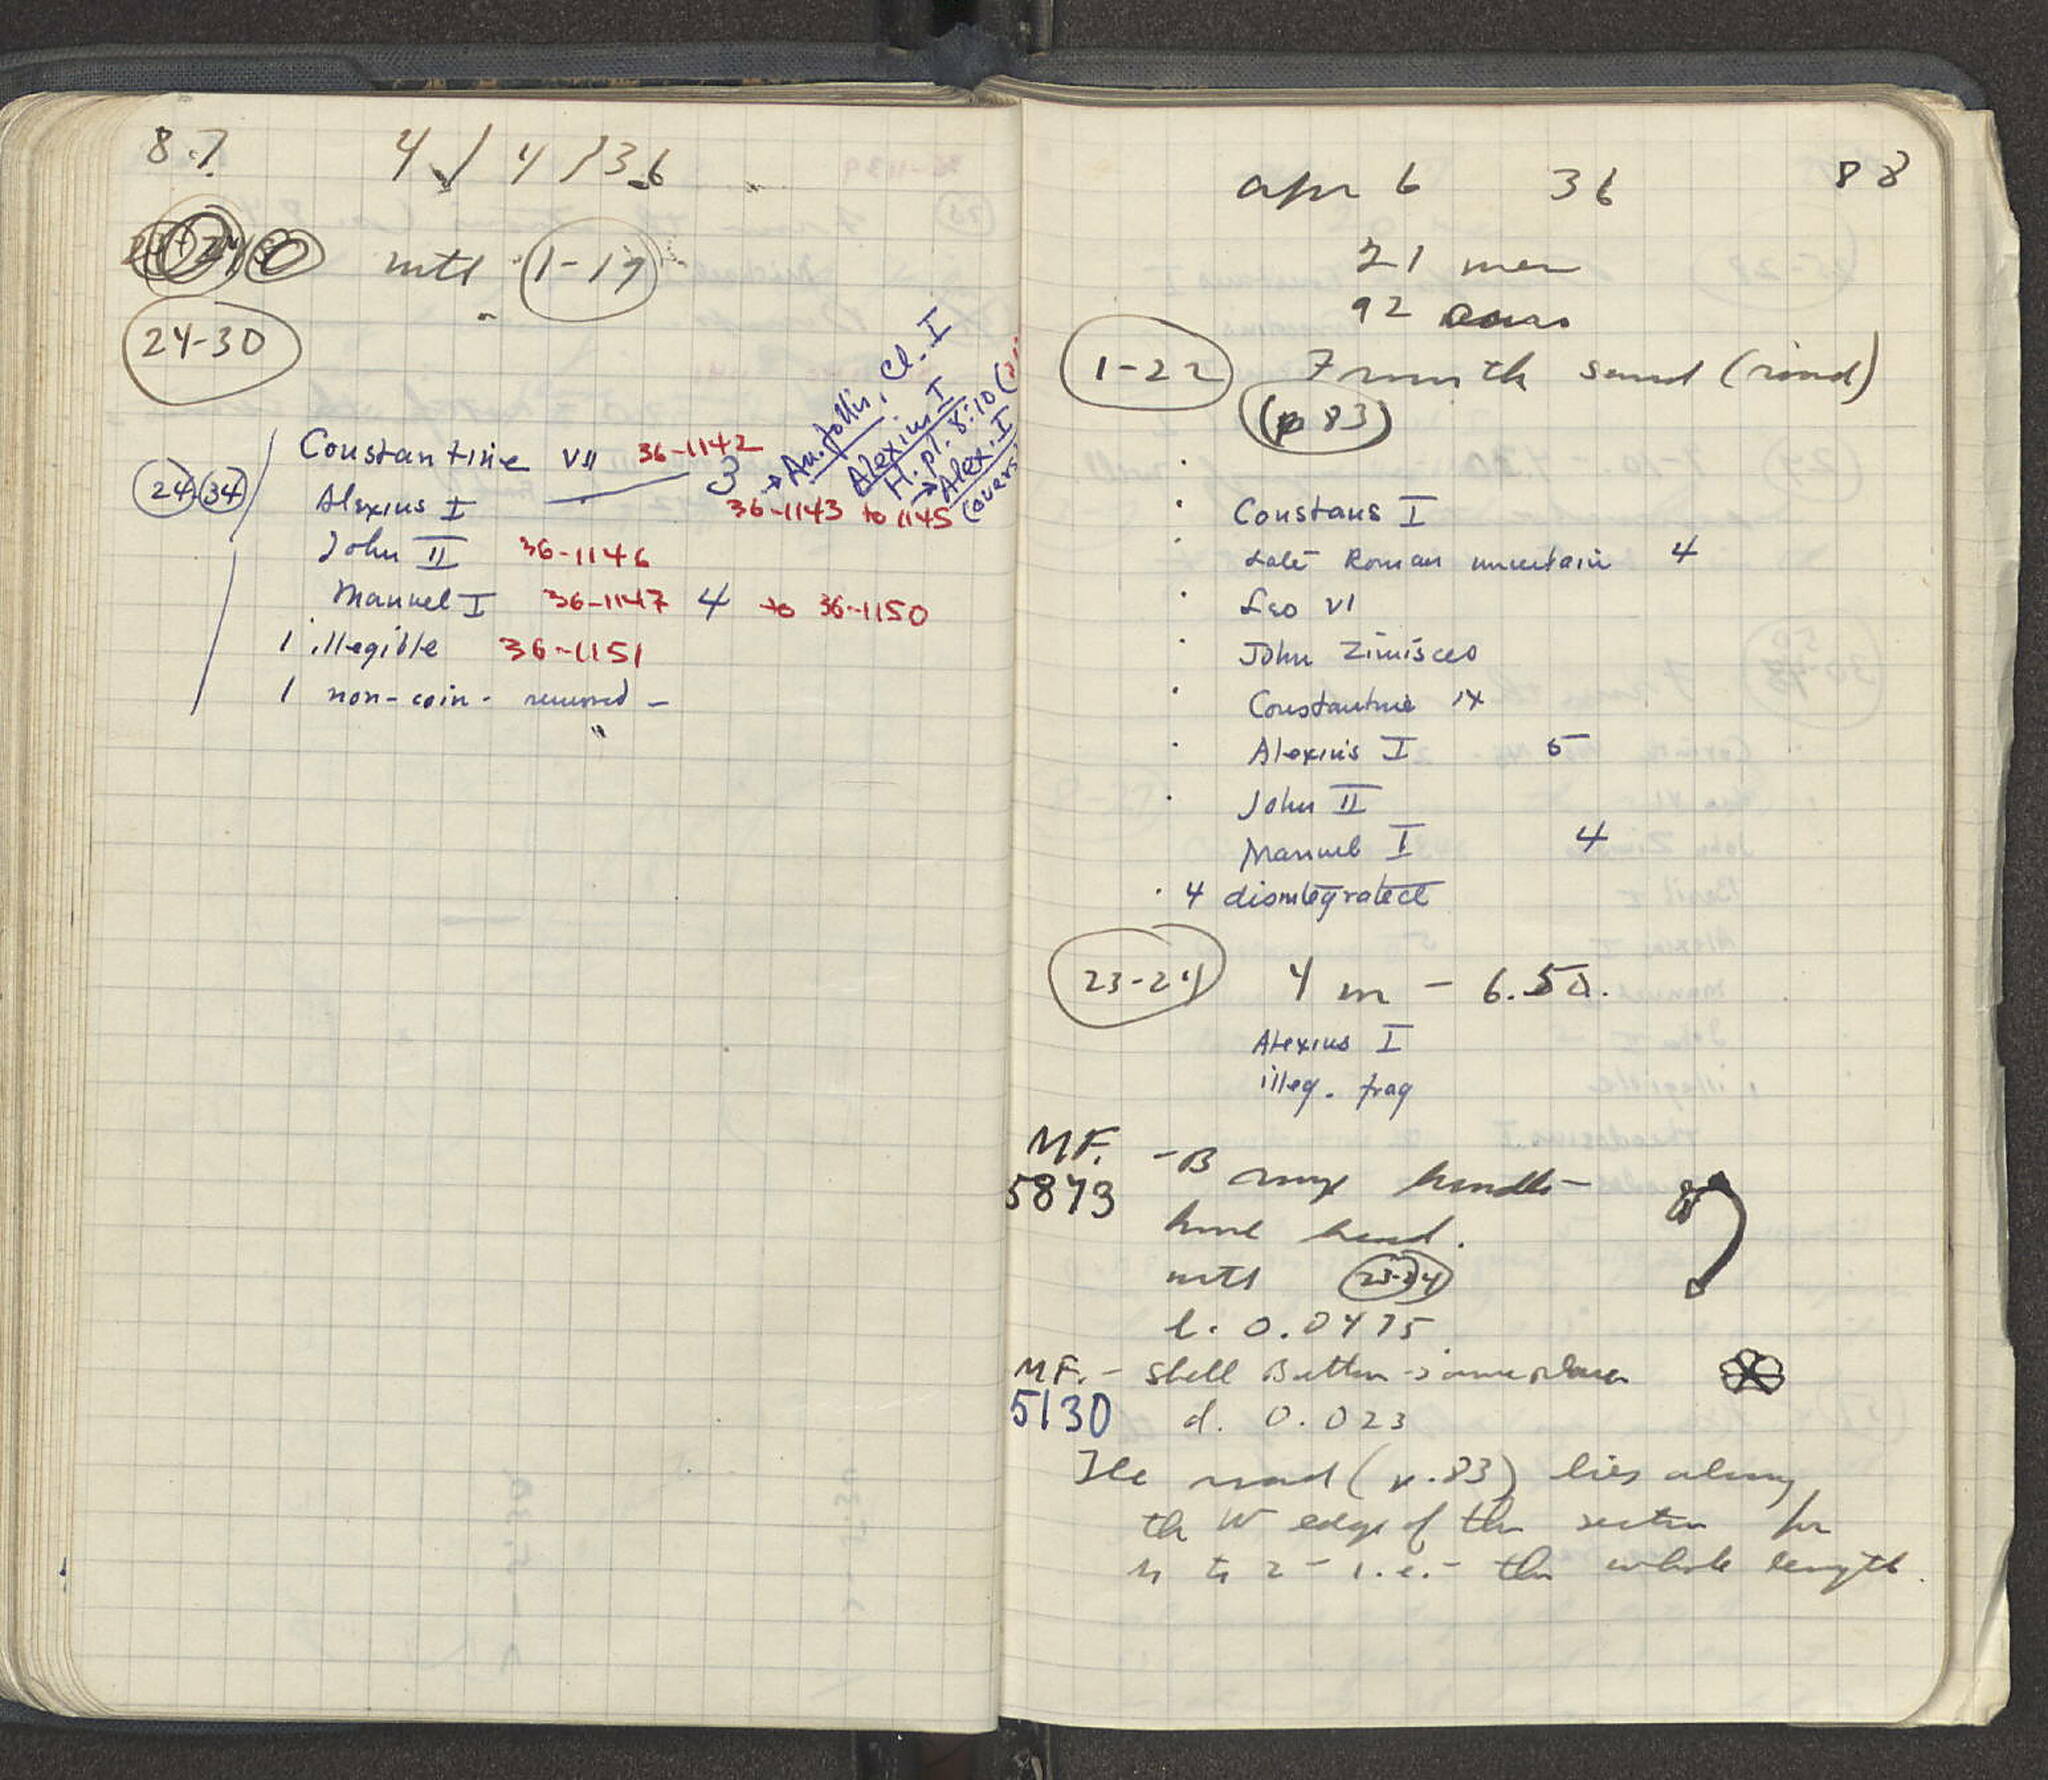 87 4/4/36
mtl 1-19
24-30
An. follis, Cl. I
Alexius I
H. pl. 8:10
Alex. I
24-34 Constantine VII 36-1142
Alexius I 3 36-1143 to 1145
John II 36-1146
Manuel I 36-1147 4 to 36-1150
1 illegible 36-1151
1 non-coin - removed -
apr 6 36 88
21 men
92
1-22 7 m th sand (road)
(p 83)
Constans I
Late Roman uncertain 4
Leo VI
John Zimisces
Constantine IX
Alexius I 5
John II
Manuel I 4
4 disintegrated
23-24 4 m - 6.50.
Alexius I
illeg. frag
MF. 5873 - B handle -
head.
mtl 23-24
l. 0.0475
MF. 5130 - Shell Button - same place
d. 0.023
The road (p. 83) lies along
the W edge of the section for
- i.e. - the whole length.